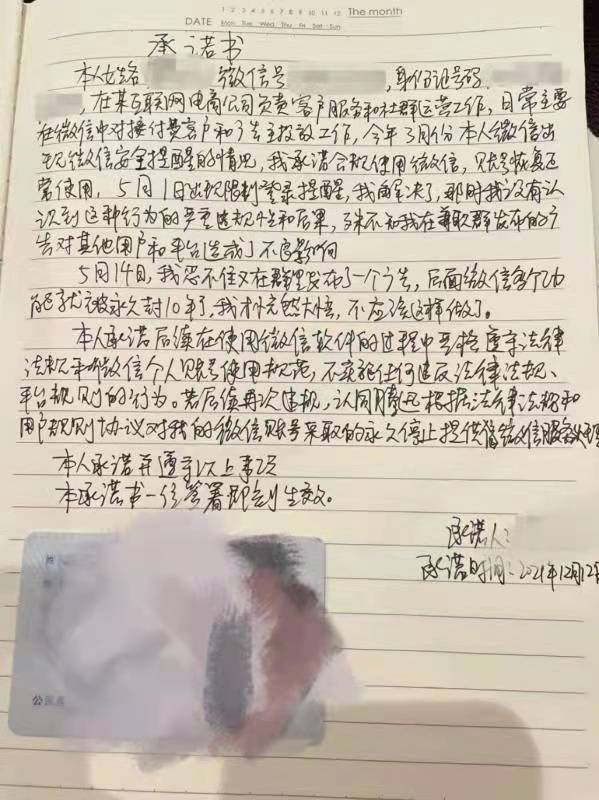 1 2 3 4 5 6 7 8 9 10 11 12 The month
DATE Mon Tue Wed Thu Fri Sat Sun
承诺书
本人姓名 微信号 ,身份证号码
,在某互联网电商公司负责客户服务和社群运营工作,日常主要
在微信中对接付费客户和广告主投放工作,今年3月份本人微信出
现微信安全提醒的情况,我承诺合规使用微信,账号恢复正
常使用,5月1日出现限制登录提醒,我解决了,那时我没有认
识到这种行为的严重违规性和后果,殊不知我在兼职群发布的广
告对其他用户和平台造成了不良影响
5月14日,我忍不住又在群里发布了一个广告,后面微信多个功
能就被永久封10年了,我才恍然大悟,不应该这样做了。
本人承诺后续在使用微信软件的过程中严格遵守法律
法规和微信个人账号使用规范,不实施任何违反法律法规、
平台规则的行为。若后续再次违规,认同腾迅根据法律法规和
用户规则协议对我的微信账号采取的永久停止提供微信服务处理
本人承诺并遵守以上事项
本承诺书一经签署即刻生效。
承诺人:
承诺时间:2021年12月12日
公民身